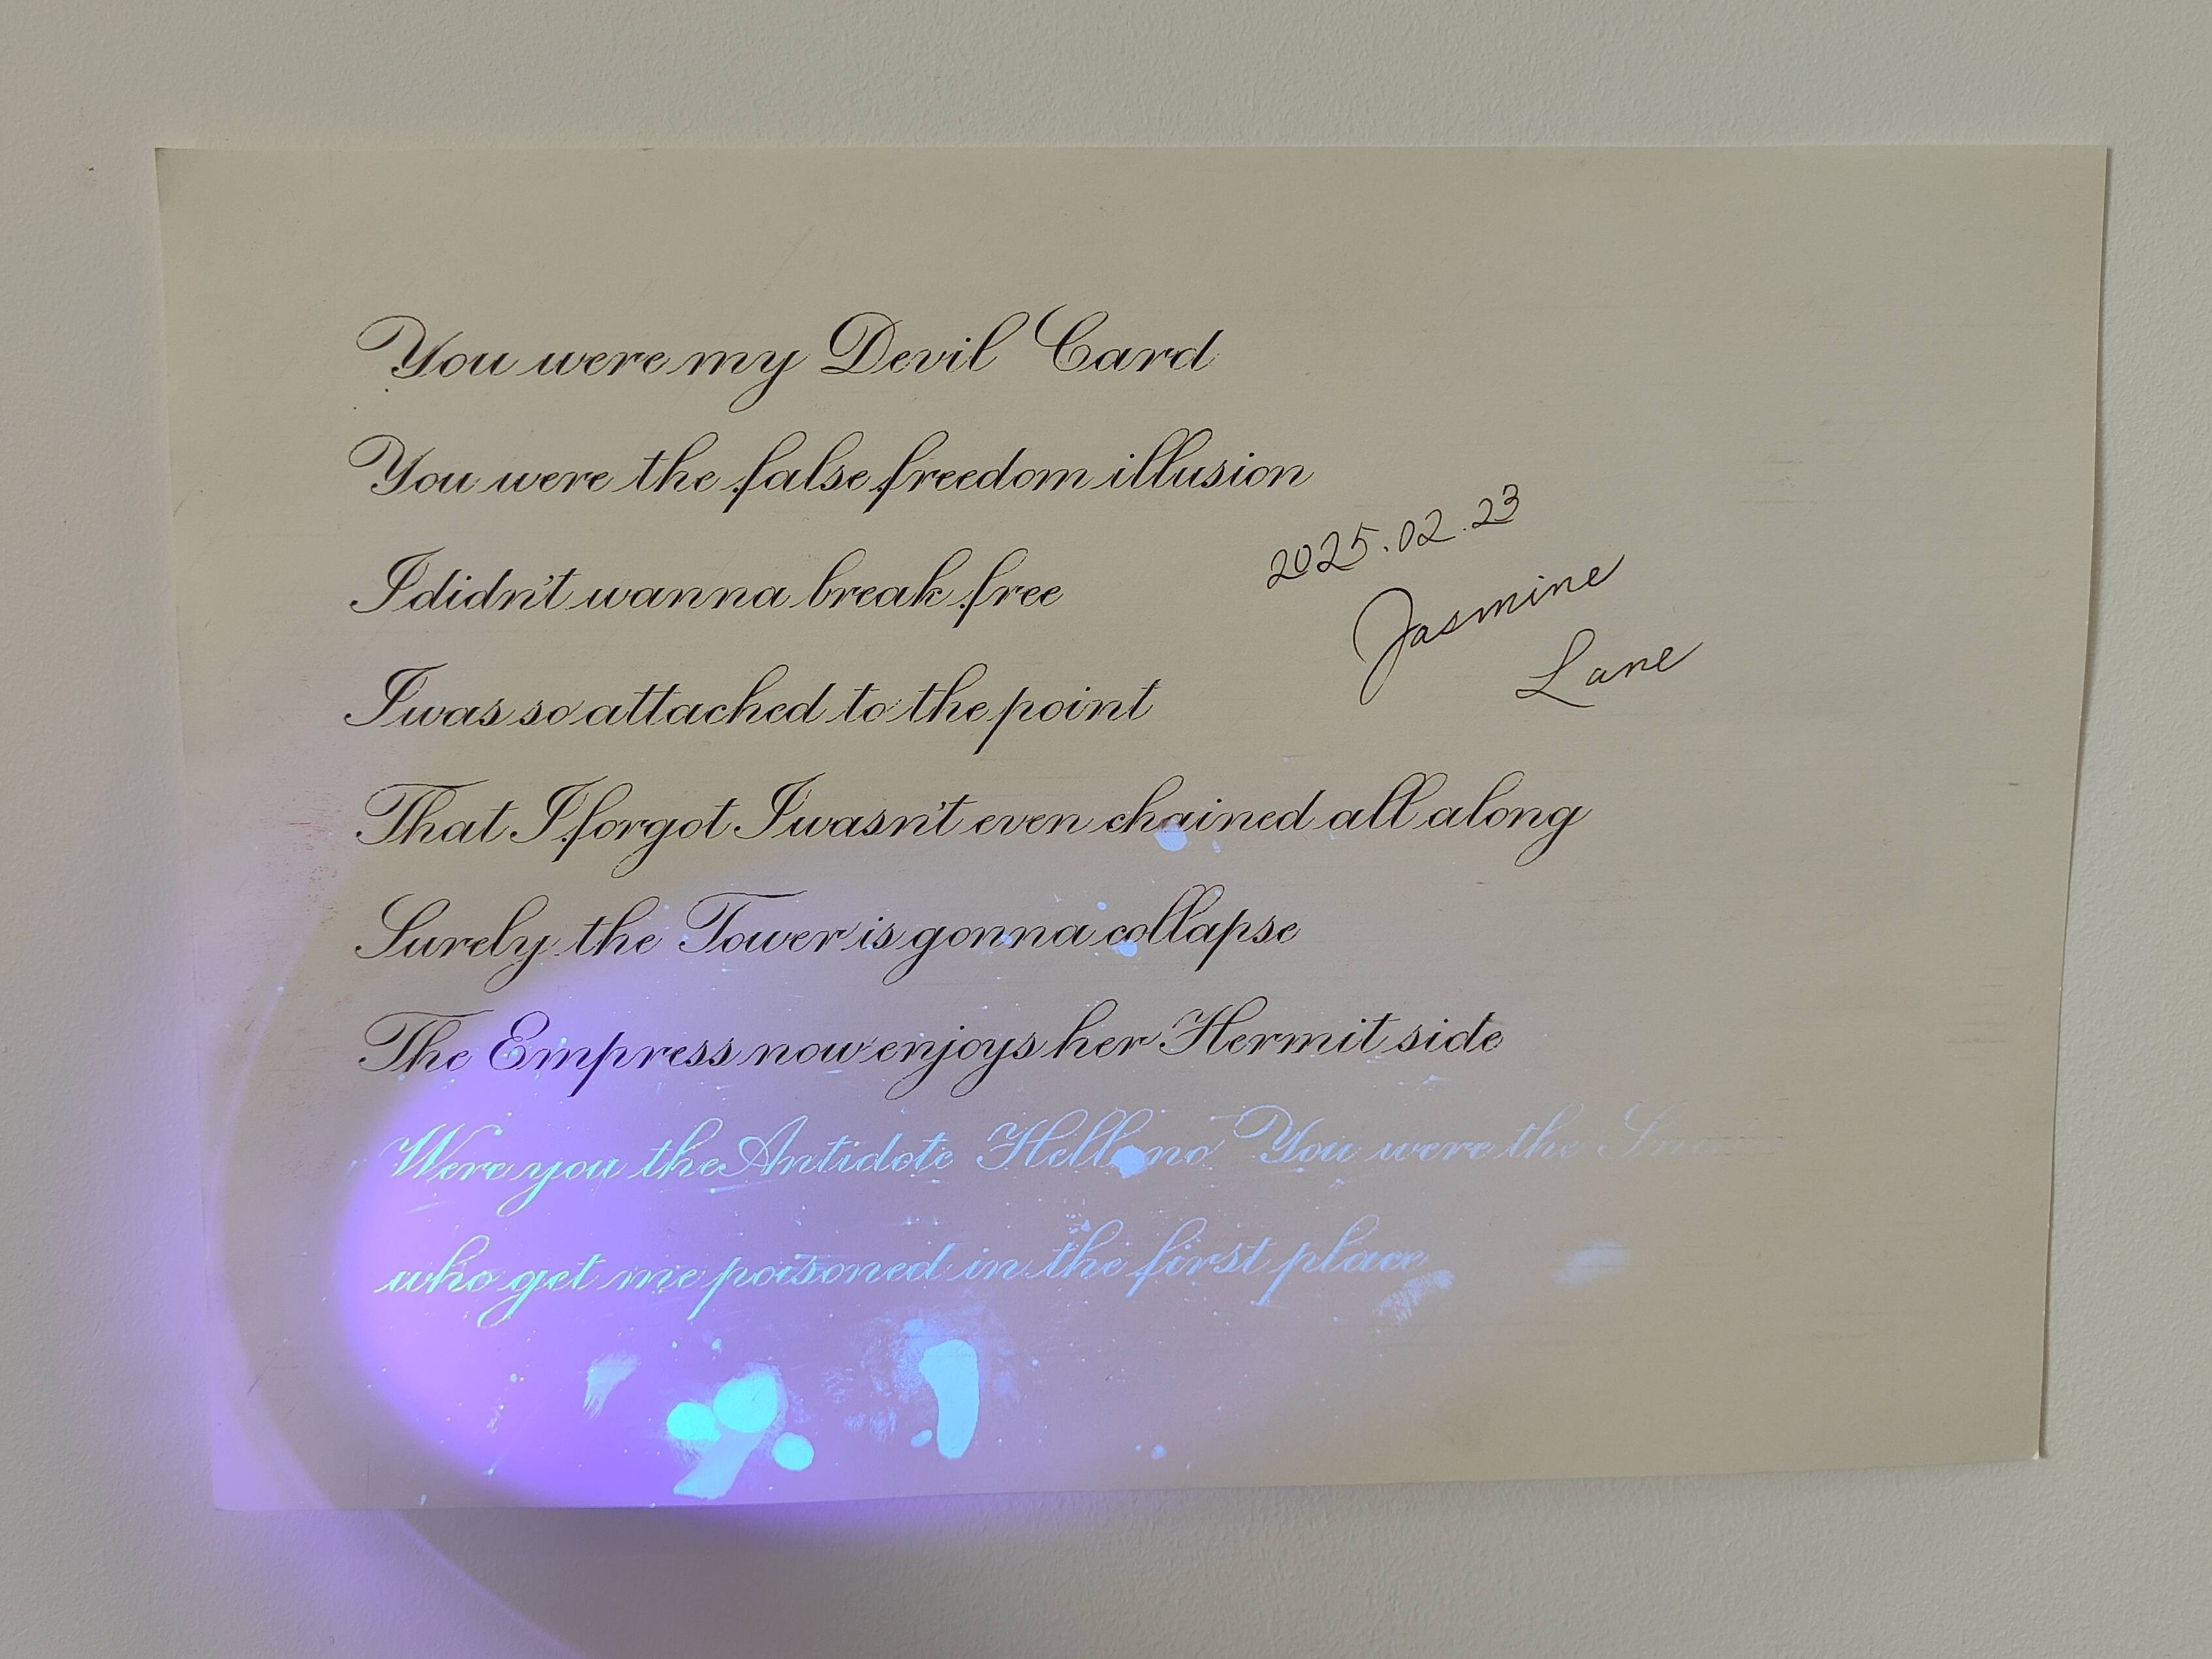 You were my Devil Card
You were the false freedom illusion
I didn't wanna break free
I was so attached to the point
That I forgot I wasn't even chained all along
Surely the Tower is gonna collapse
The Empress now enjoys her Hermit side
Were you the Antidote Hell no You were the
who get me poisoned in the first place
2025.02.23
Jasmine
Lane